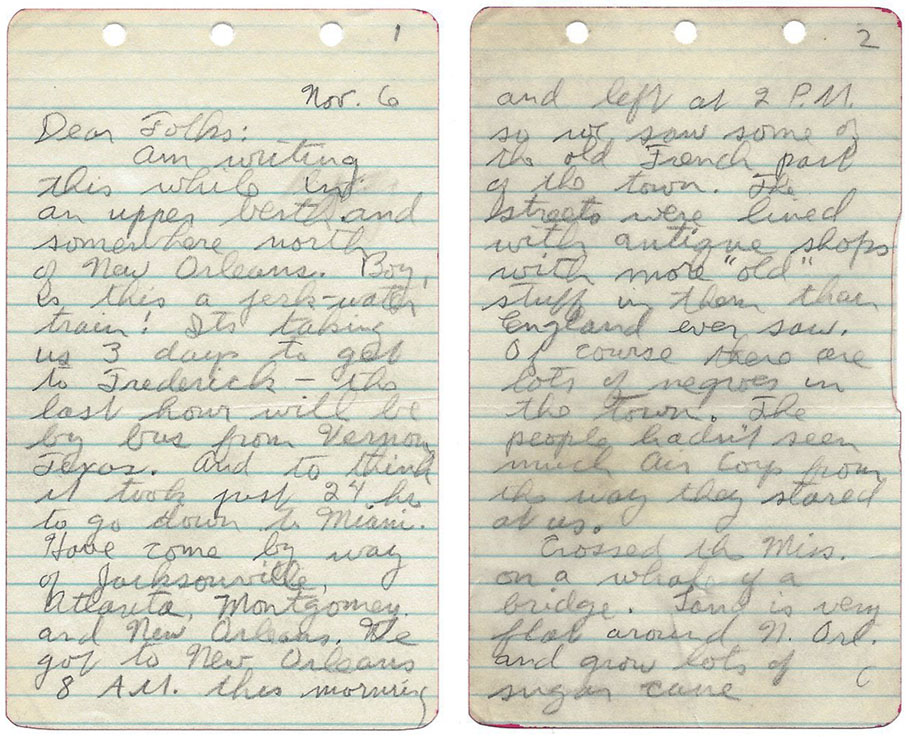 1
Nov. 6
Dear Folks:
Am writing
this while in
an upper berth and
somewhere north
of New Orleans. Boy,
is this a jerk-water
train! Its taking
us 3 days to get
to Frederick – the
last hour will be
by bus from Vernon,
Texas. And to think
it took just 24 hrs
to go down to Miami.
Have come by way
of Jacksonville,
Atlanta, Montgomery
and New Orleans. We
got to New Orleans
8 A.M. this morning
2
and left at 2 P.M.
so we saw some of
the old French part
of the town. The
streets were lined
with antique shops
with more "old"
stuff in them than
England ever saw.
Of course there are
lots of negroes in
the town. The
people hadn't seen
much Air Corp from
the way they stared
at us.
Crossed the Miss.
on a whale of a
bridge. Land is very
flat around N. Orl.
and grow lots of
sugar cane